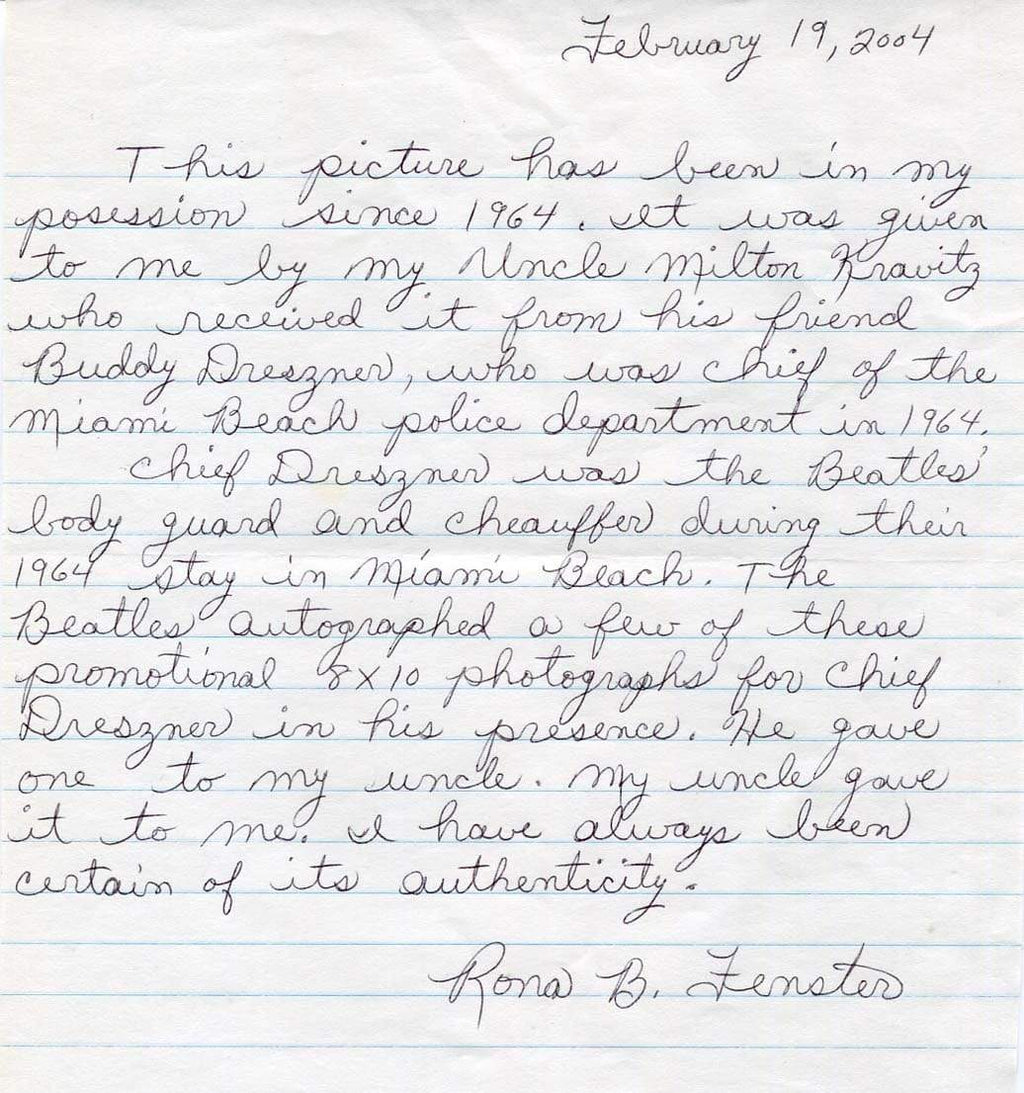 February 19, 2004
This picture has been in my
posession since 1964. It was given
to me by my Uncle Milton Kravitz
who received it from his friend
Buddy Dreszner, who was chief of the
Miami Beach police department in 1964.
Chief Dreszner was the Beatles'
body guard and cheauffer during their
1964 stay in Miami Beach. The
Beatles autographed a few of these
promotional 8x10 photographs for Chief
Dreszner in his presence. He gave
one to my uncle. My uncle gave
it to me. I have always been
certain of its authenticity.
Rona B. Fenster